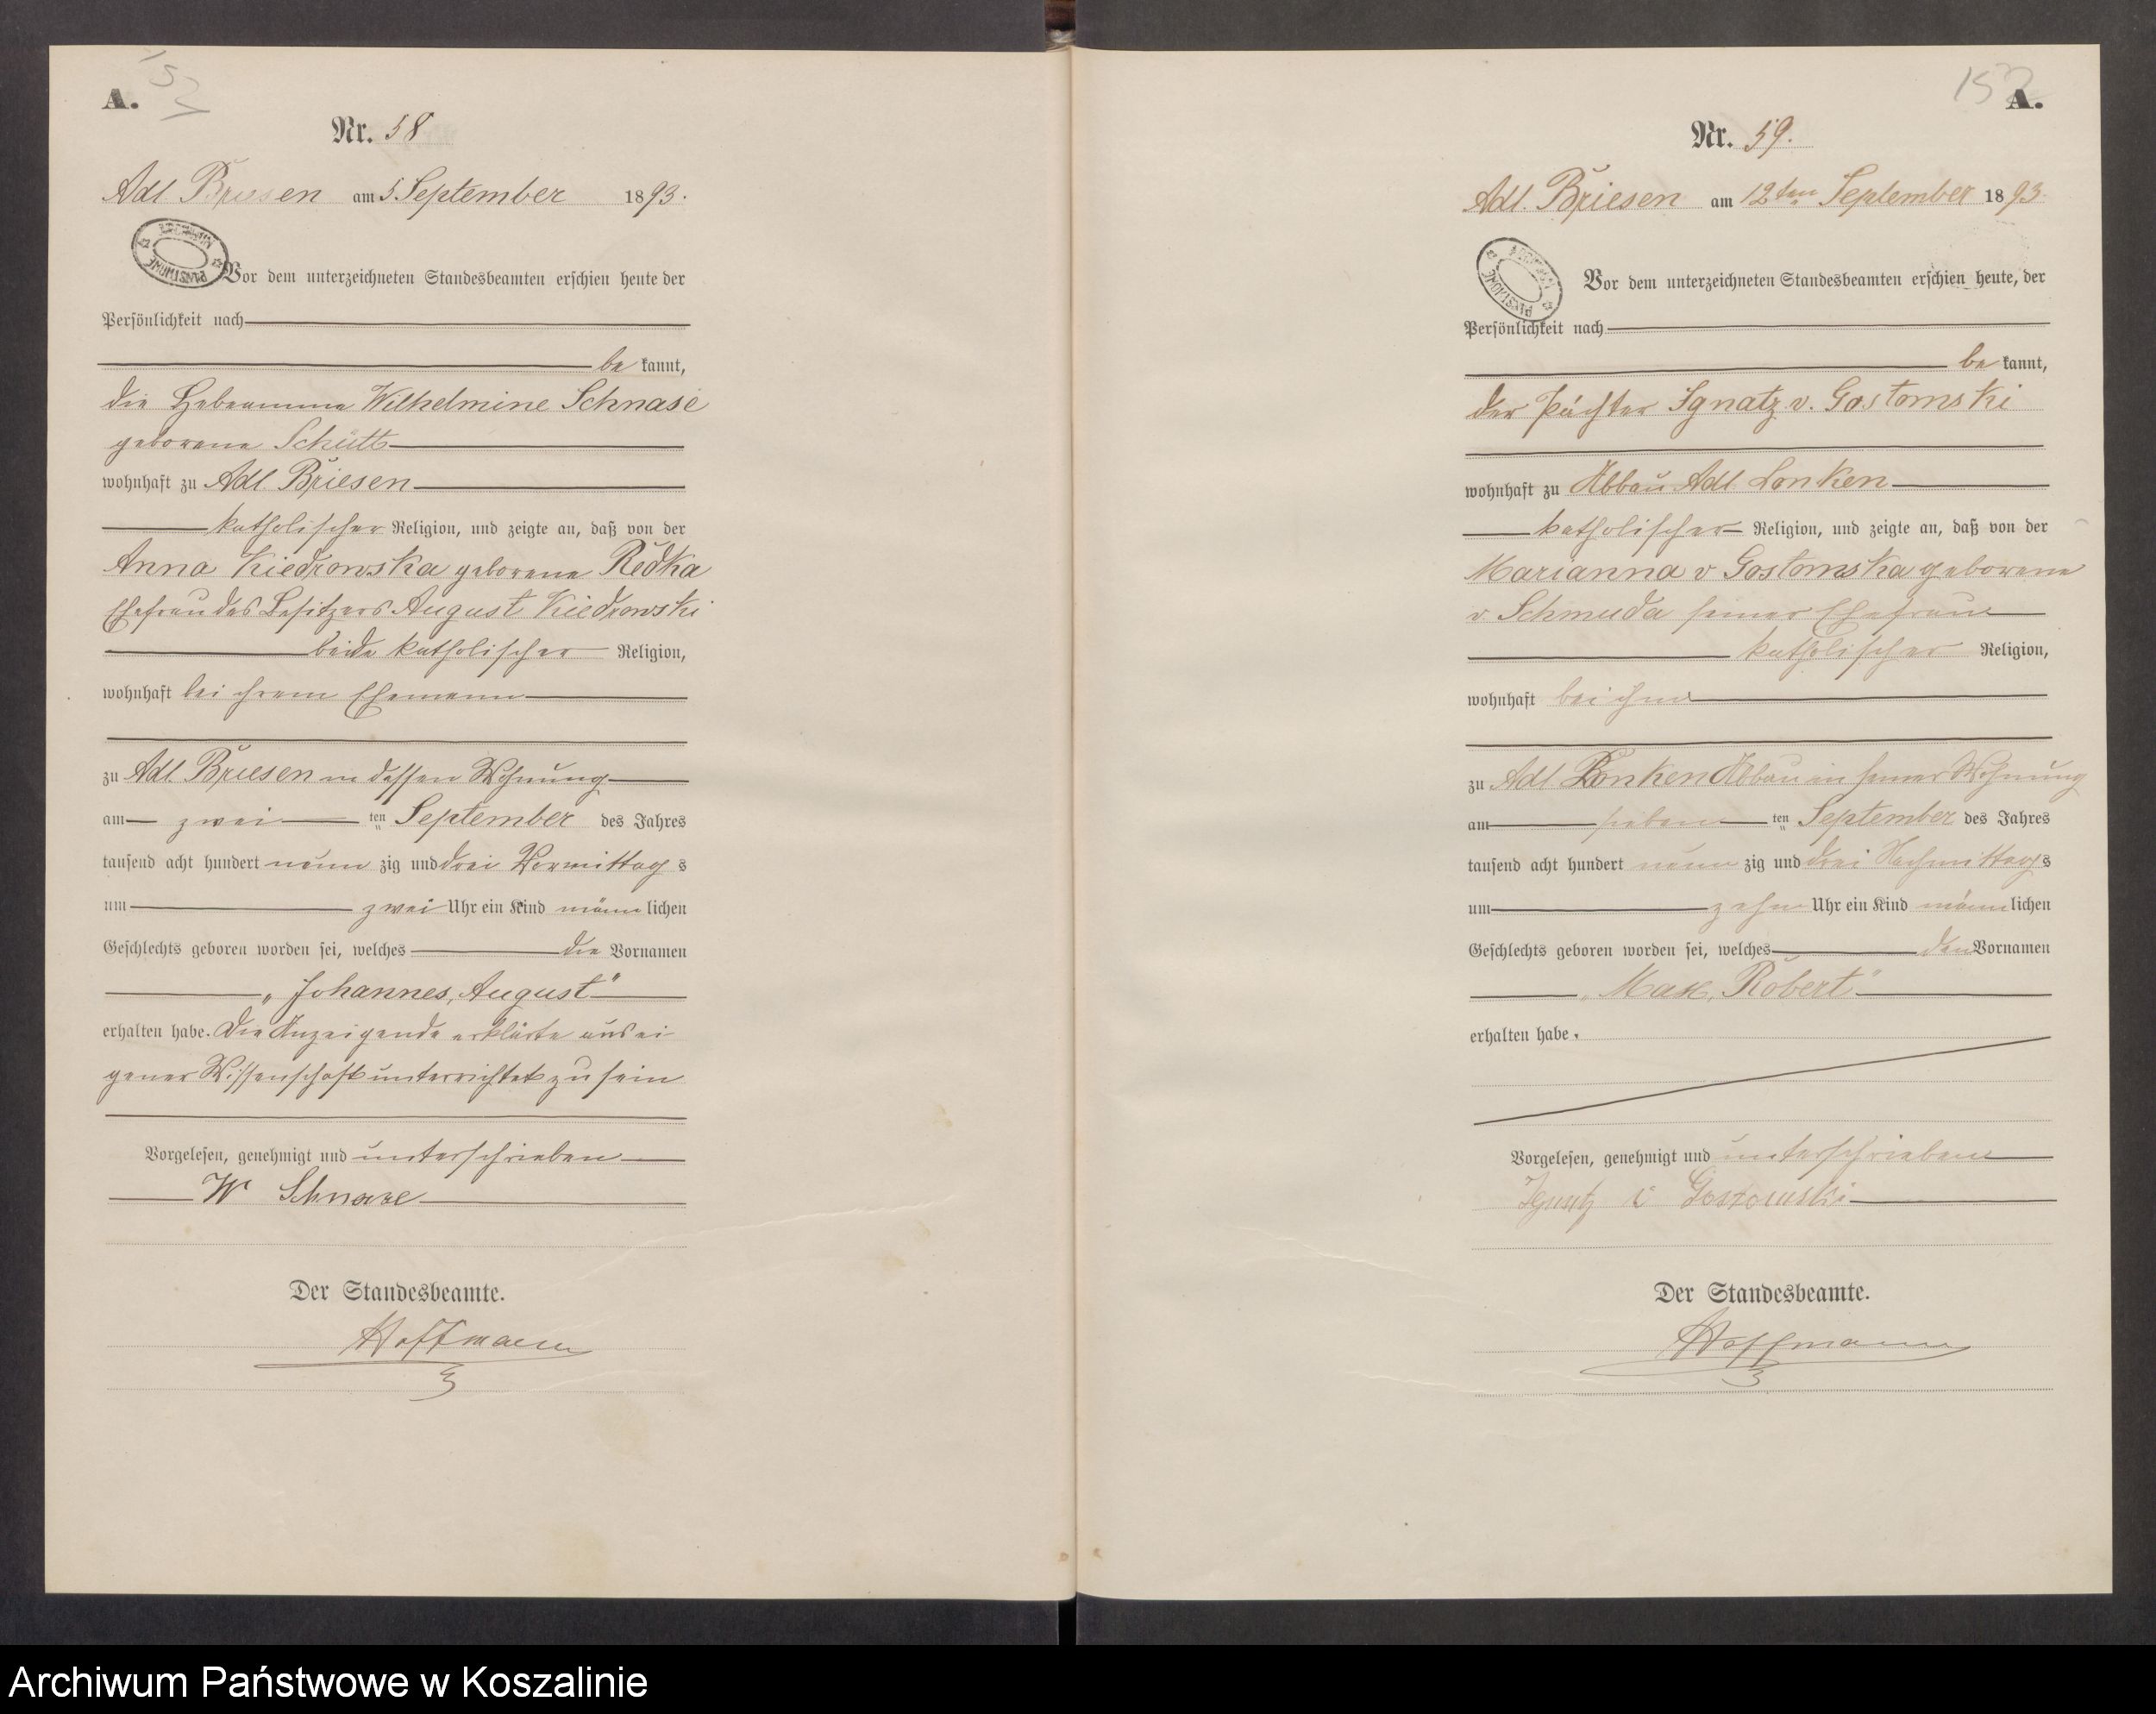 A.
152
Nr. 58
Adl. Briesen am 5 September 1893.
ARCHIWUM PAŃSTWOWE
Vor dem unterzeichneten Standesbeamten erschien heute der
Persönlichkeit nach
be kannt,
die Hebeamme Wilhelmine Schnase
geborene Schütt
wohnhaft zu Adl. Briesen
katholischer Religion, und zeigte an, daß von der
Anna Kiedrowska geborene Redka
Ehefrau des Besitzers August Kiedrowski
beide katholischer Religion,
wohnhaft bei ihrem Ehemann
zu Adl. Briesen in dessen Wohnung
am zwei ten September des Jahres
tausend acht hundert neun zig und drei Vormittag s
um zwei Uhr ein Kind männ lichen
Geschlechts geboren worden sei, welches die Vornamen
„Johannes, August"
erhalten habe. Die Anzeigende erklärte aus ei
gener Wissenschaft unterrichtet zu sein
Vorgelesen, genehmigt und unterschrieben
W Schnase
Der Standesbeamte.
Hoffmann
152
A.
Nr. 59.
Adl. Briesen am 12ten September 1893.
ARCHIWUM PAŃSTWOWE
Vor dem unterzeichneten Standesbeamten erschien heute, der
Persönlichkeit nach
be kannt,
der Pächter Ignatz v. Gostomski
wohnhaft zu Abbau Adl. Lonken
katholischer Religion, und zeigte an, daß von der
Marianna v Gostomska geborene
v. Schmuda seiner Ehefrau
katholischer Religion,
wohnhaft bei ihm
zu Adl. Lonken Abbau in seiner Wohnung
am sieben ten September des Jahres
tausend acht hundert neun zig und drei Nachmittag s
um zehn Uhr ein Kind männ lichen
Geschlechts geboren worden sei, welches den Vornamen
„Max, Robert"
erhalten habe.
Vorgelesen, genehmigt und unterschrieben
Ignatz v Gostomski
Der Standesbeamte.
Hoffmann
Archiwum Państwowe w Koszalinie